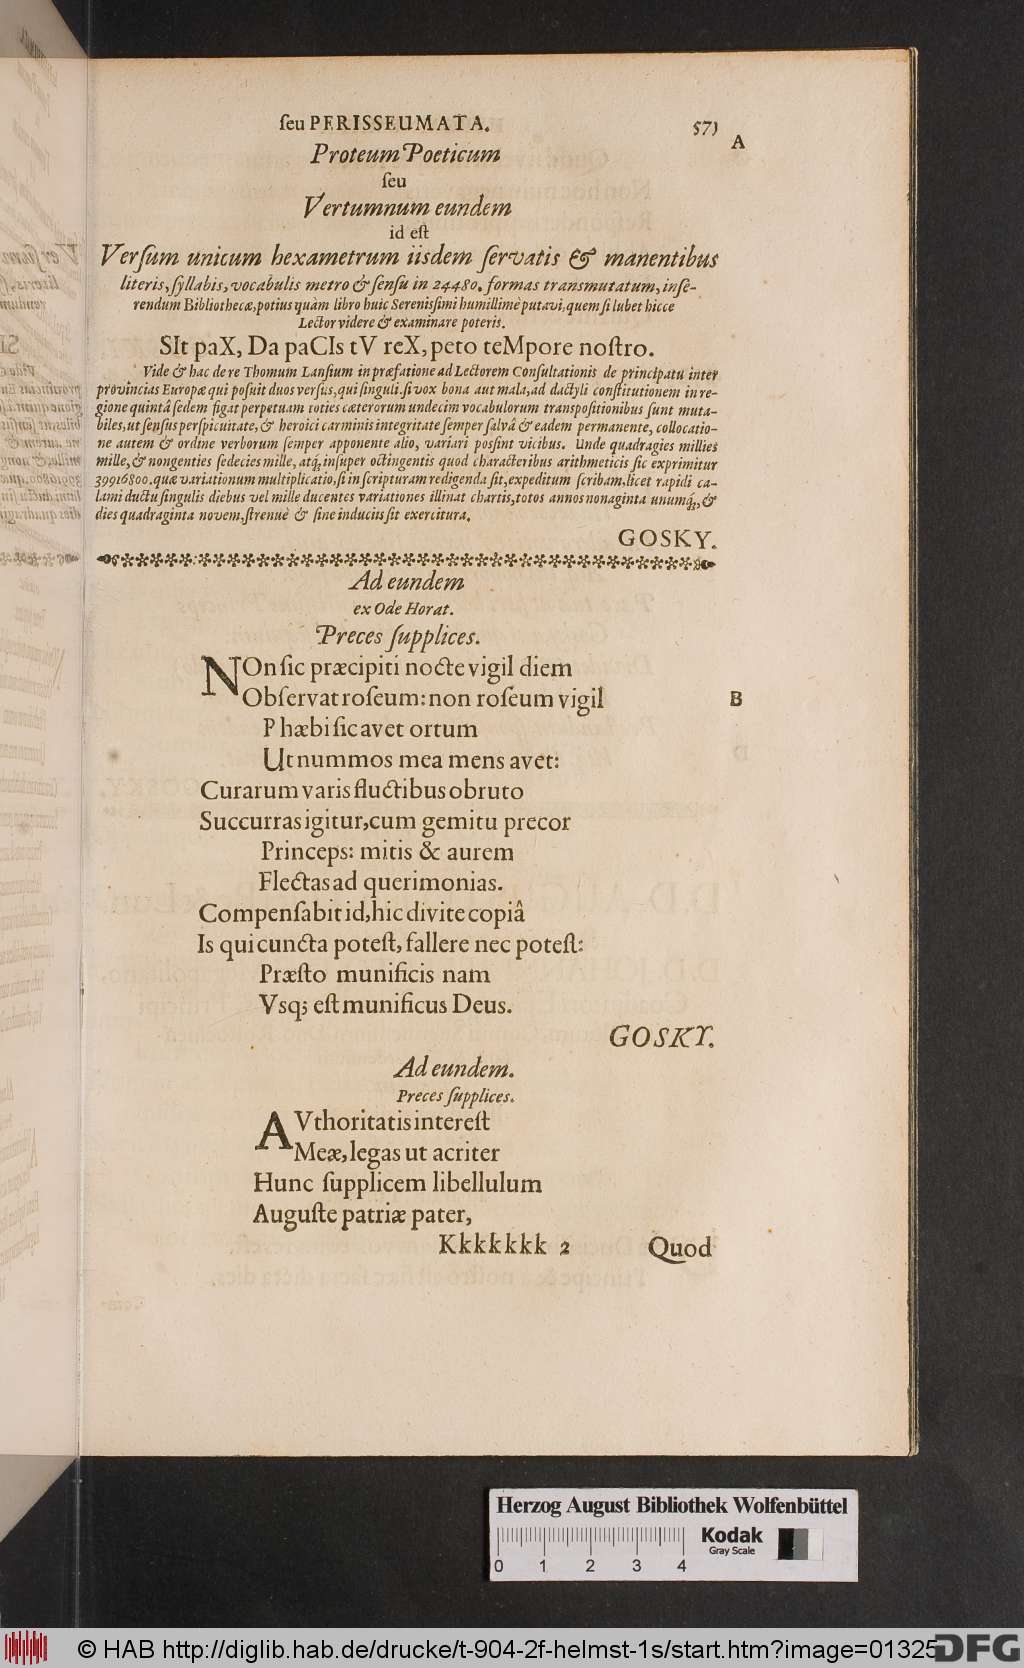 seu PERISSEUMATA. 57)
A
Proteum Poeticum
seu
Vertumnum eundem
id est
Versum unicum hexametrum iisdem servatis & manentibus
literis, syllabis, vocabulis metro & sensu in 24480. formas transmutatum, inse-
rendum Bibliothecæ, potius quàm libro huic Serenissimi humillimè putavi, quem si lubet hicce
Lector videre & examinare poteris.
SIt paX, Da paCIs tV reX, peto teMpore nostro.
Vide & hac de re Thomum Lansium in præfatione ad Lectorem Consultationis de principatu inter
provincias Europæ qui posuit duos versus, qui singuli, si vox bona aut mala, ad dactyli constitutionem in re-
gione quintâ sedem figat perpetuam toties cæterorum undecim vocabulorum transpositionibus sunt muta-
biles, ut sensus perspicuitate, & heroici carminis integritate semper salvâ & eadem permanente, collocatio-
ne autem & ordine verborum semper apponente alio, variari possint vicibus. Unde quadragies millies
mille, & nongenties sedecies mille, atq; insuper octingentis quod characteribus arithmeticis sic exprimitur
39916800. quæ variationum multiplicatio, si in scripturam redigenda sit, expeditum scribam, licet rapidi ca-
lami ductu singulis diebus vel mille ducentes variationes illinat chartis, totos annos nonaginta unumq;, &
dies quadraginta novem, strenuè & sine induciis sit exercitura.
GOSKY.
Ad eundem
ex Ode Horat.
Preces supplices.
NOn sic præcipiti nocte vigil diem
Observat roseum: non roseum vigil
B
Phæbi sic avet ortum
Ut nummos mea mens avet:
Curarum varis fluctibus obruto
Succurras igitur, cum gemitu precor
Princeps: mitis & aurem
Flectas ad querimonias.
Compensabit id, hic divite copiâ
Is qui cuncta potest, fallere nec potest:
Præsto munificis nam
Vsq; est munificus Deus.
GOSKY.
Ad eundem.
Preces supplices.
AVthoritatis interest
Meæ, legas ut acriter
Hunc supplicem libellulum
Auguste patriæ pater,
Kkkkkkk 2 Quod
Herzog August Bibliothek Wolfenbüttel
Kodak
Gray Scale
0 1 2 3 4
© HAB http://diglib.hab.de/drucke/t-904-2f-helmst-1s/start.htm?image=01325
DFG